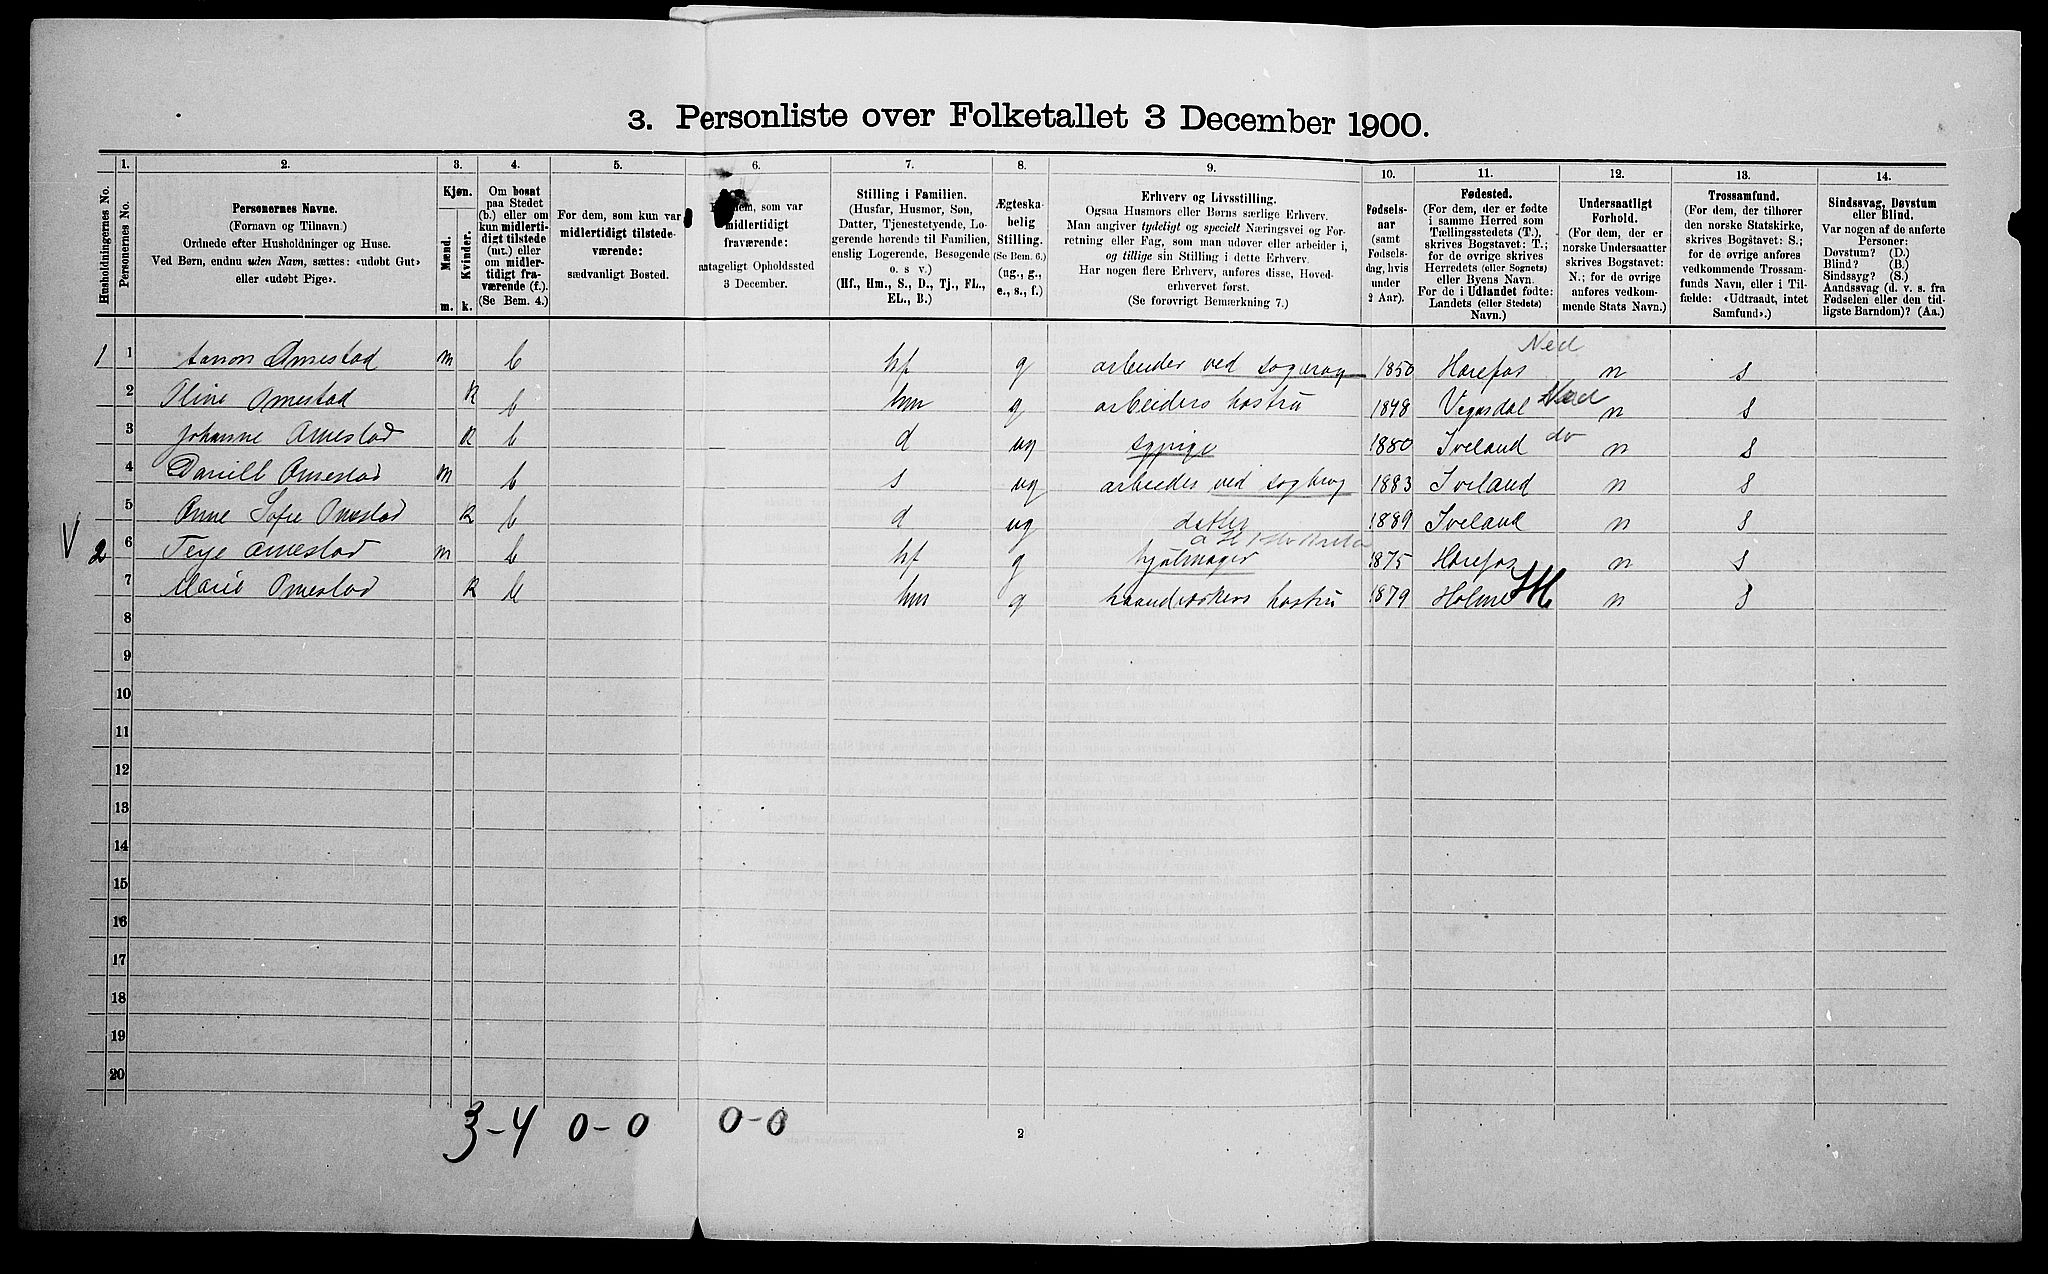 3. Personliste over Folketallet 3 December 1900.
Husholdningernes No.
1.
Personernes No.
2.
Personernes Navne.
(Fornavn og Tilnavn.)
Ordnede efter Husholdninger og Huse.
Ved Børn, endnu uden Navn, sættes: «udøbt Gut»
eller «udøbt Pige».
3.
Kjøn.
Mænd.
Kvinder.
m.
k.
4.
Om bosat
paa Stedet
(b.) eller om
kun midler-
tidigt tilstede
(mt.) eller
om midler-
tidigt fra-
værende (f.).
(Se Bem. 4.)
5.
For dem, som kun var
midlertidigt tilstede-
værende:
sædvanligt Bosted.
6.
dem, som var
midlertidigt
fraværende:
antageligt Opholdssted
3 December.
7.
Stilling i Familien.
(Husfar, Husmor, Søn,
Datter, Tjenestetyende, Lo-
gerende hørende til Familien,
enslig Logerende, Besøgende
o. s. v.)
(Hf., Hm., S., D., Tj., FL.,
EL., B.)
8.
Ægteska-
belig
Stilling.
(Se Bem. 6.)
(ug., g.,
e., s., f.)
9.
Erhverv og Livsstilling.
Ogsaa Husmors eller Børns særlige Erhverv.
Man angiver tydeligt og specielt Næringsvei og For-
retning eller Fag, som man udøver eller arbeider i,
og tillige sin Stilling i dette Erhverv.
Har nogen flere Erhverv, anføres disse, Hoved-
erhvervet først.
(Se forøvrigt Bemærkning 7.)
10.
Fødsels-
aar
(samt
Fødsels-
dag, hvis
under
2 Aar).
11.
Fødested.
(For dem, der er fødte
i samme Herred som
Tællingsstedets (T.),
skrives Bogstavet: T.;
for de øvrige skrives
Herredets (eller Sognets)
eller Byens Navn.
For de i Udlandet fødte:
Landets (eller Stedets)
Navn.)
12.
Undersaatligt
Forhold.
(For dem, der er
norske Undersaatter
skrives Bogstavet:
N.; for de øvrige
anføres vedkom-
mende Stats Navn.)
13.
Trossamfund.
(For dem, der tilhører
den norske Statskirke,
skrives Bogstavet: S.;
for de øvrige anføres
vedkommende Trossam-
funds Navn, eller i Til-
fælde: «Udtraadt, intet
Samfund».)
14.
Sindssvag, Døvstum
eller Blind.
Var nogen af de anførte
Personer:
Døvstum? (D.)
Blind? (B.)
Sindssyg? (S.)
Aandssvag (d. v. s. fra
Fødselen eller den tid-
ligste Barndom)? (Aa.)
Ned
1 1 Aanon Omestad m b hf g arbeider ved sagbrug 1850 Herefos n S
2 Oline Omestad K b hm g arbeiders hustru 1848 Vegusdal Ned n S
3 Johanne Omestad K b d ug sypige 1880 Iveland do n S
4 Daniell Omestad m b s ug arbeider ved sagbrug 1883 Iveland n S
5 Anne Sofie Omestad K b d ug datter 1889 Iveland n S
V 2 6 Terje Omestad m b hf g hjulmager 1875 Herefos n S
7 Marie Omestad K b hm g haandværkers hustru 1879 Holme n S
8
9
10
11
12
13
14
15
16
17
18
19
20
3-4 0-0 0-0
2